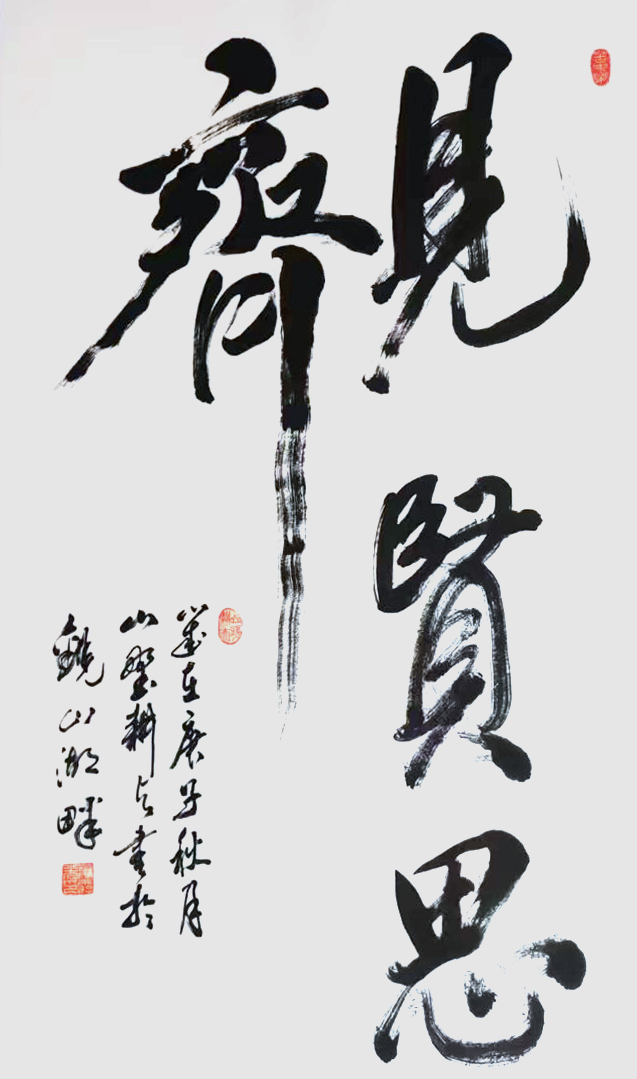 見賢思
齊
歲在庚子秋月
山野耕夫書於
鏡山湖畔